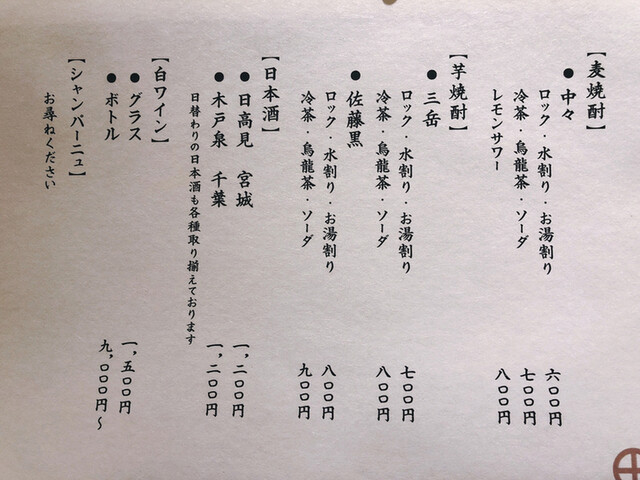 【麦焼酎】
●中々
ロック・水割り・お湯割り 六〇〇円
冷茶・烏龍茶・ソーダ 七〇〇円
レモンサワー 八〇〇円
【芋焼酎】
●三岳
ロック・水割り・お湯割り 七〇〇円
冷茶・烏龍茶・ソーダ 八〇〇円
●佐藤黒
ロック・水割り・お湯割り 八〇〇円
冷茶・烏龍茶・ソーダ 九〇〇円
【日本酒】
●日高見 宮城 一,二〇〇円
●木戸泉 千葉 一,二〇〇円
日替わりの日本酒も各種取り揃えております
【白ワイン】
●グラス 一,五〇〇円
●ボトル 九,〇〇〇円～
【シャンパーニュ】
お尋ねください